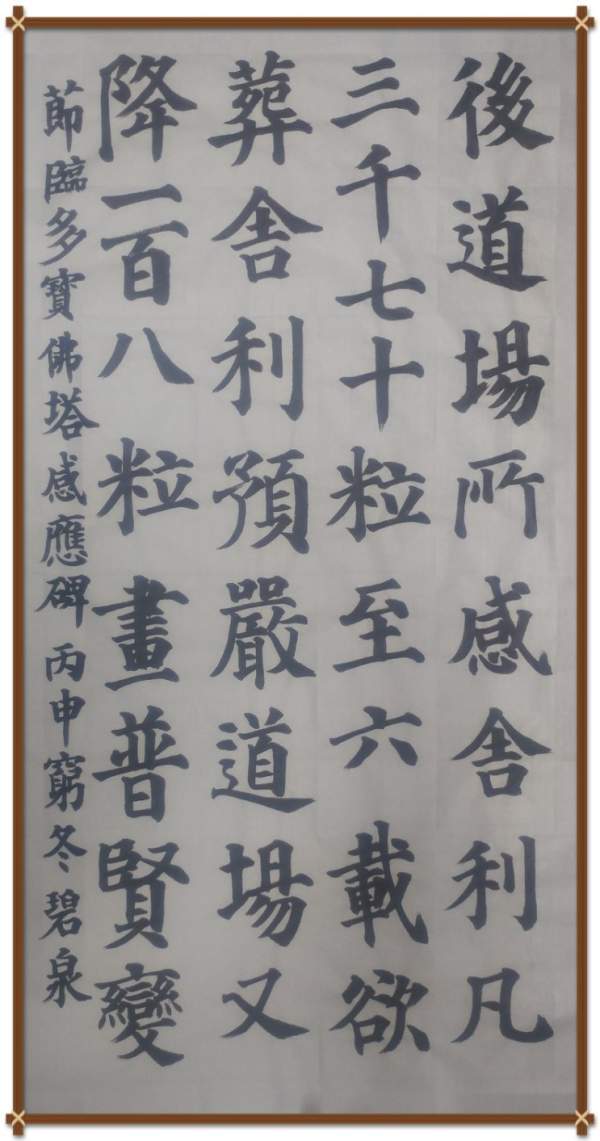 後道場所感舍利凡
三千七十粒至六載欲
葬舍利預嚴道場又
降一百八粒畫普賢變
節臨多寶佛塔感應碑丙申窮冬碧泉